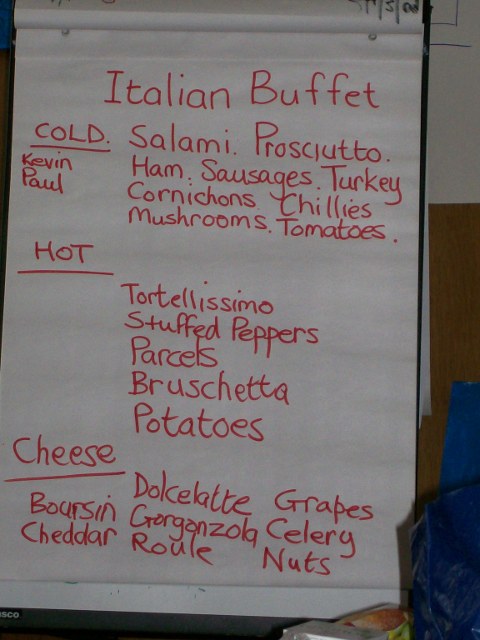 Italian Buffet
COLD. Salami. Prosciutto.
Kevin Ham. Sausages. Turkey
Paul Cornichons. Chillies
Mushrooms. Tomatoes.
HOT
Tortellissimo
Stuffed Peppers
Parcels
Bruschetta
Potatoes
Cheese
Boursin Dolcelatte Grapes
Cheddar Gorgonzola Celery
Roule Nuts